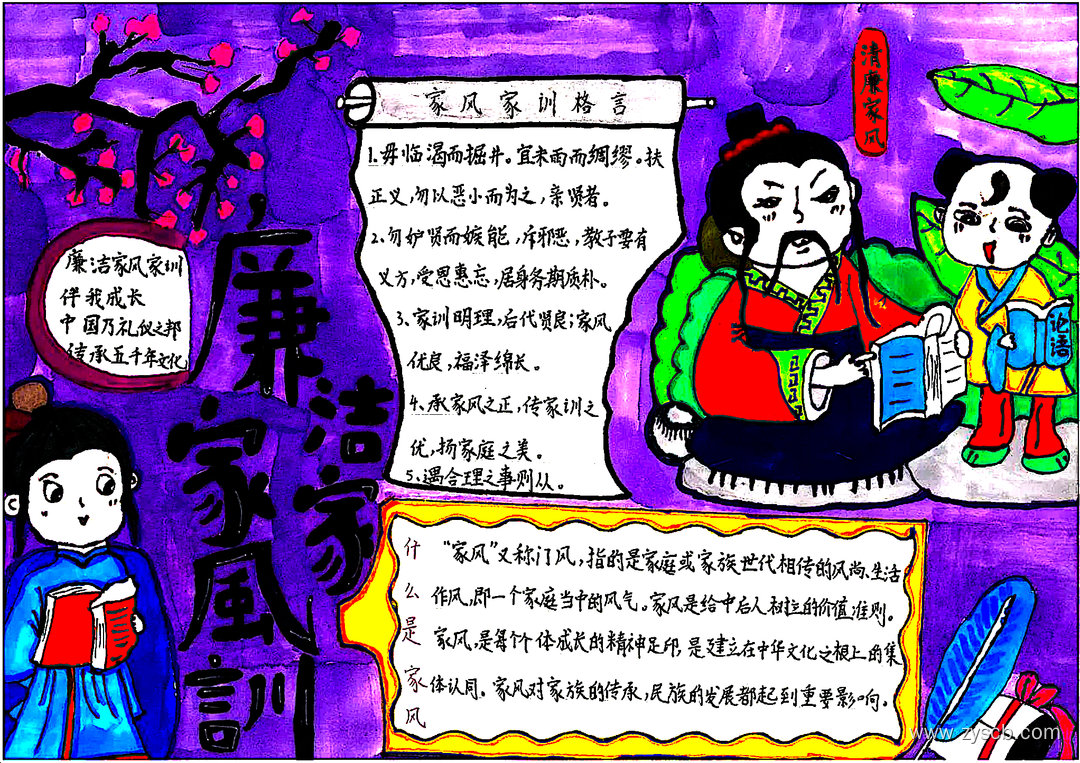 廉洁家家風訓
清廉家风
家风家训格言
1.毋临渴而掘井。宜未雨而绸缪。扶
正义,勿以恶小而为之,亲贤者。
2.勿妒贤而嫉能,斥邪恶,教子要有
义方,受思惠忘,居身务期质朴。
3、家训明理,后代贤良;家风
优良,福泽绵长。
4、承家风之正,传家训之
优,扬家庭之美。
5、遇合理之事则从。
廉洁家风家训
伴我成长
中国乃礼仪之邦
传承五千年文化
论语
什么是家风
“家风”又称门风,指的是家庭或家族世代相传的风尚、生活
作风,即一个家庭当中的风气。家风是给中后人树立的价值准则。
家风,是每个个体成长的精神足印,是建立在中华文化之根上的集
体认同。家风对家族的传承,民族的发展都起到重要影响。
www.zyscb.com